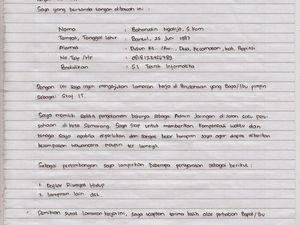 Saya yang bertanda tangan dibawah ini :
Nama : Baharudin Ngadijo, S.kom
Tempat, Tanggal lahir : Bantul, 25 Juni 1987
Alamat : Dusun Rt. /Rw. , Desa, Kecamatan, kab, Provinsi
No. Telp /Hp :
Pendidikan : S.1 Teknik Informatika
Dengan ini Saya ingin mengajukan lamaran kerja di Perusahaan yang Bapak/Ibu pimpin
Sebagai Staf IT.
Saya memiliki sedikit pengalaman bekerja sebagai Admin Jaringan didalam satu per-
usahaan di kota Semarang. Saya siap untuk memberikan kompetensi waktu dan
tenaga saya apabila diperlukan dan sangat besar harapan saya agar dapat diberikan
kesempatan wawancara maupun tes lainnya.
Sebagai pertimbangan saya lampirkan beberapa persyaratan sebagai berikut :
1. Daftar Riwayat Hidup
2. lampiran lain dst.
Demikian surat lamaran kerja ini, saya ucapkan terima kasih atas perhatian Bapak/Ibu